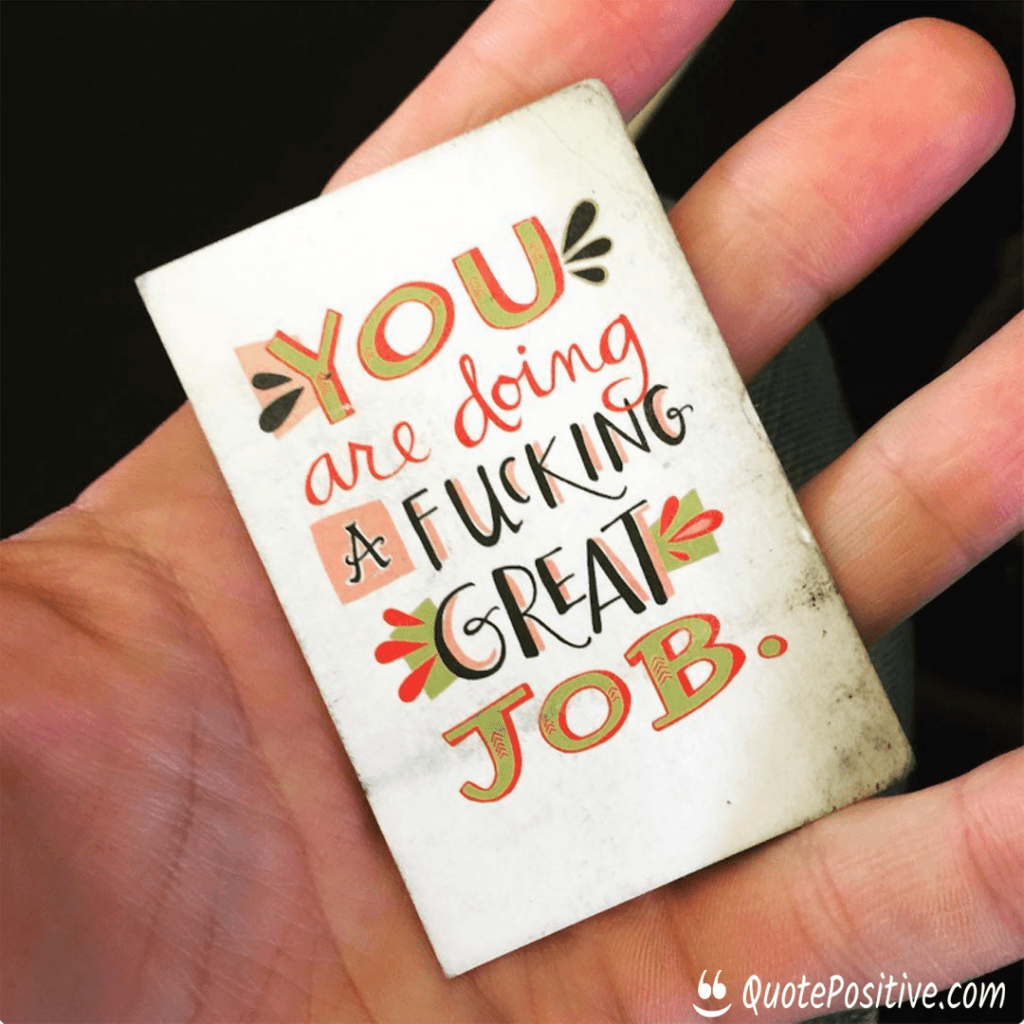 YOU
are doing
A FUCKING
GREAT
JOB.
QuotePositive.com